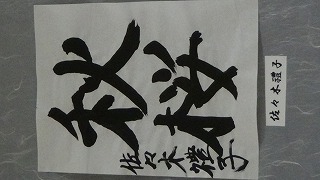 秋桜
佐々木禮子
佐々木禮子